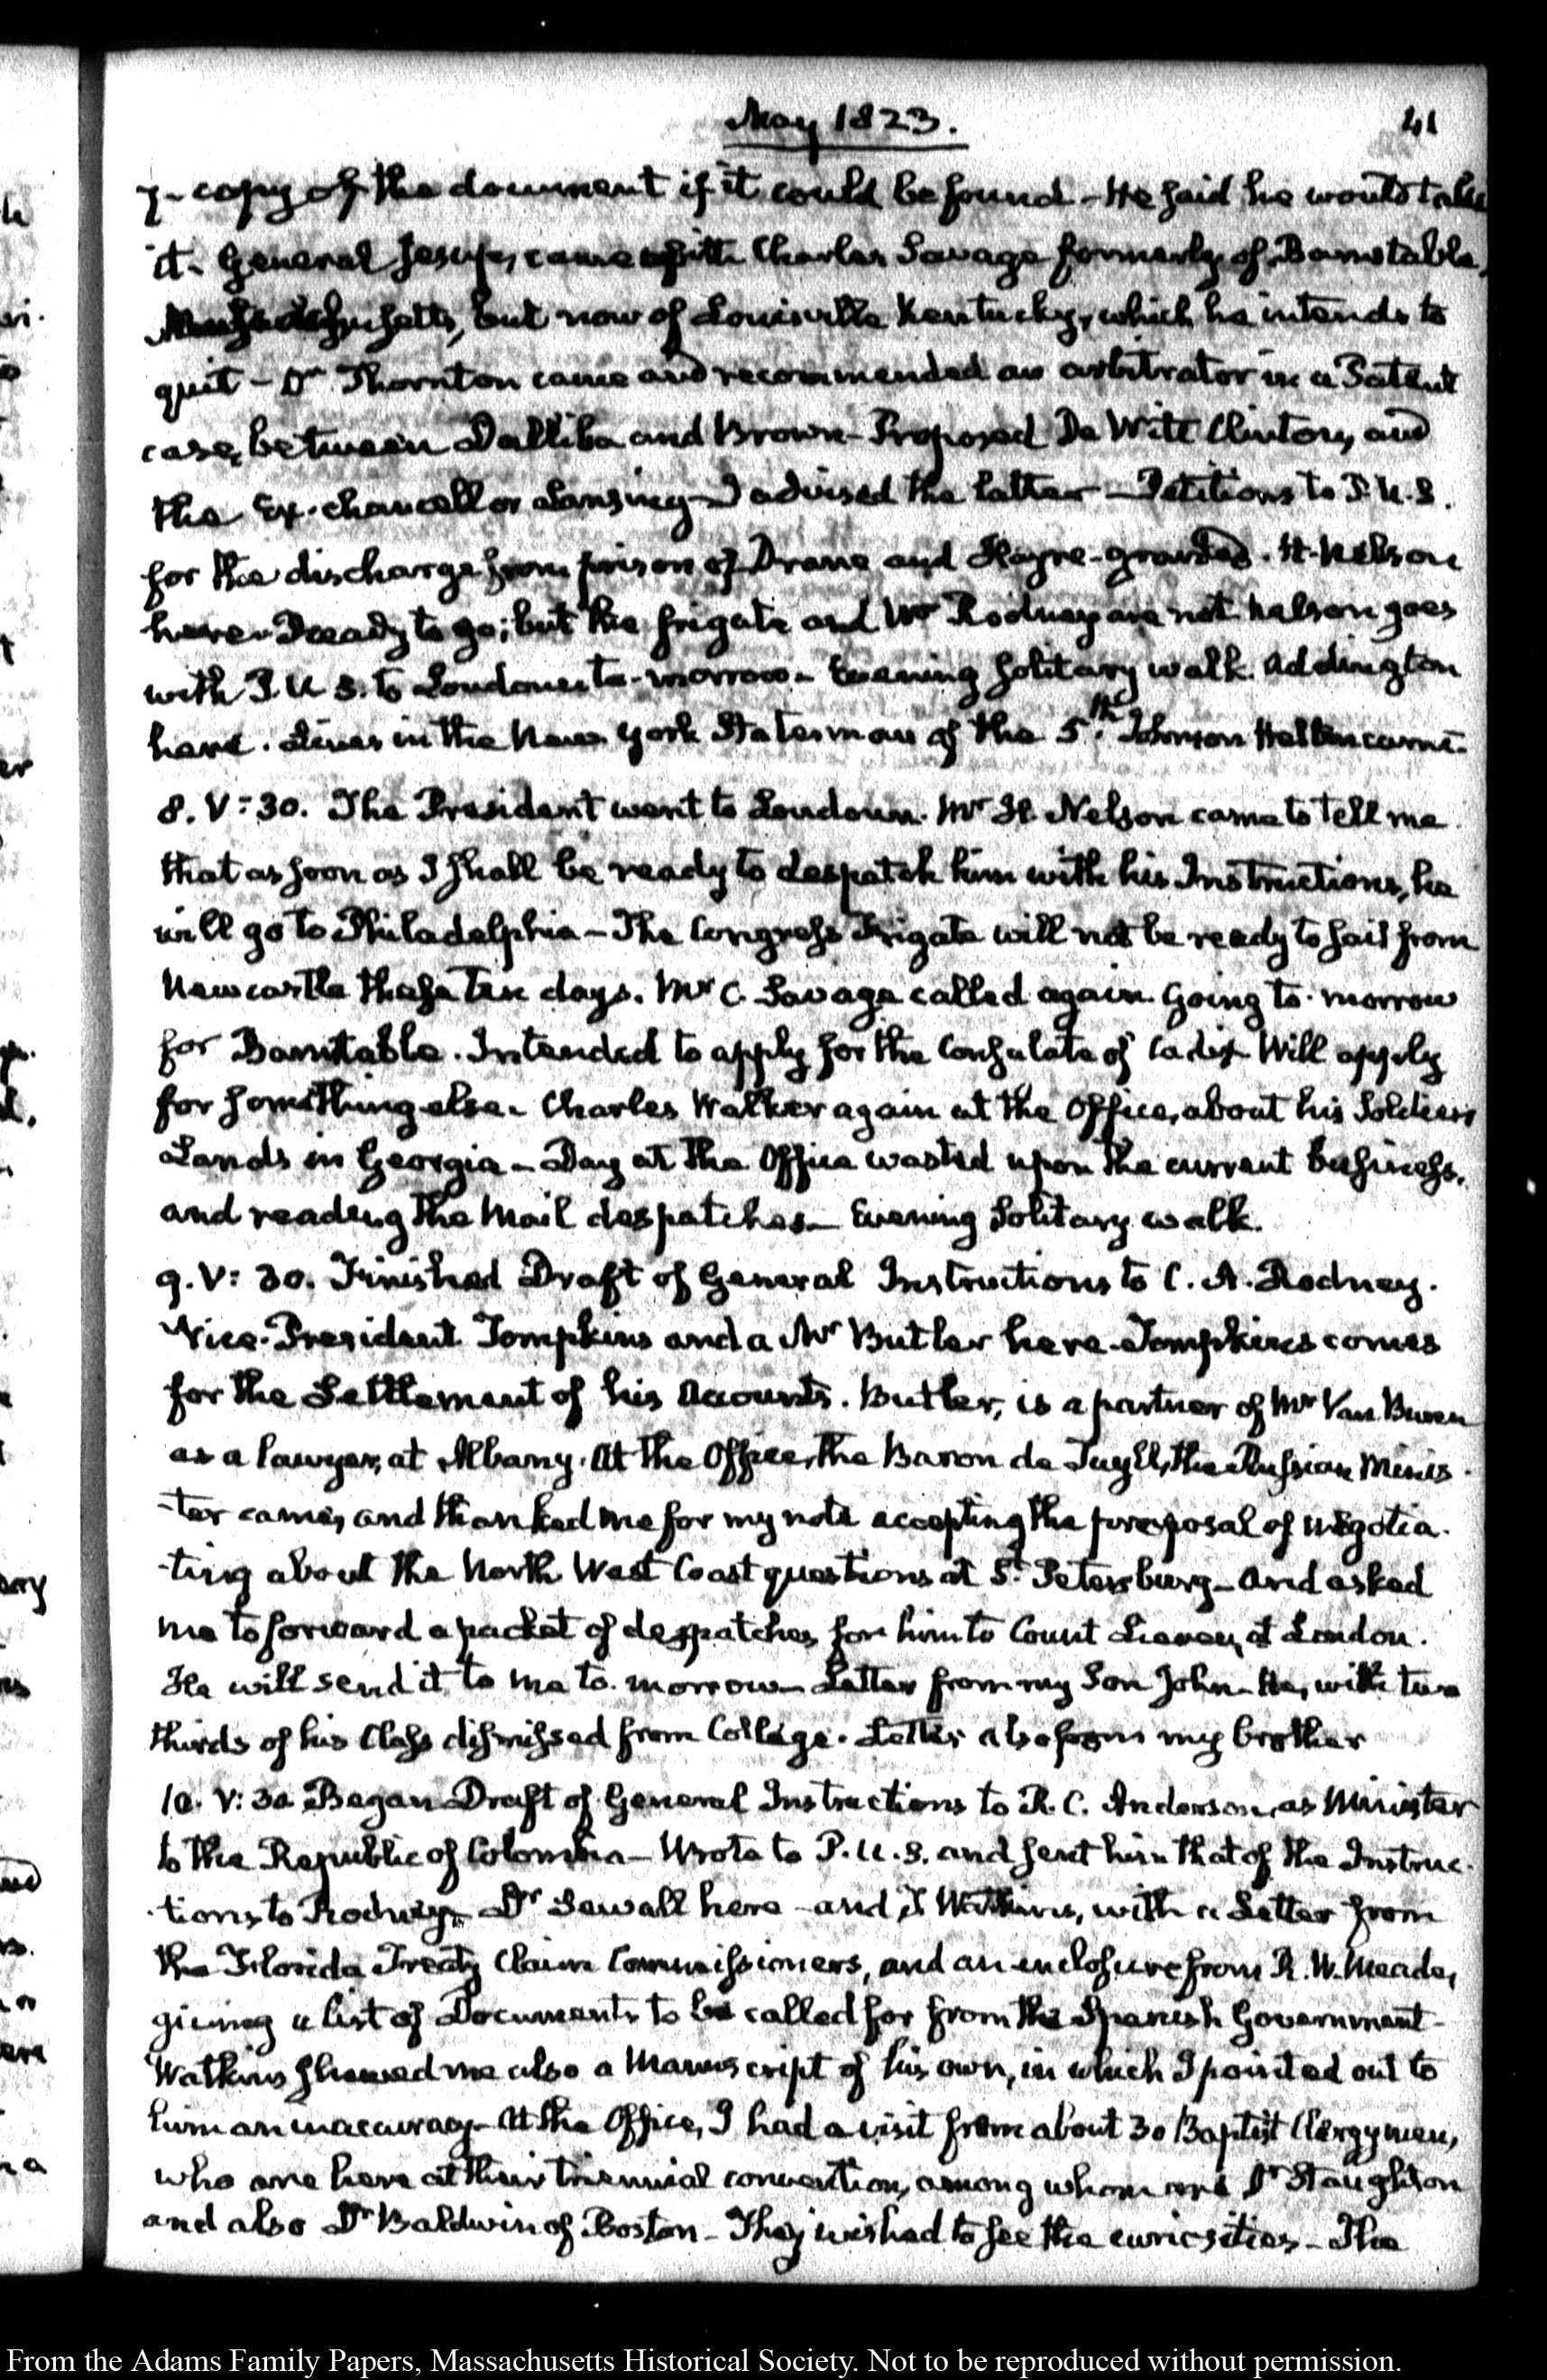 May 1823.
41
7- copy of the document if it could be found - He said he would take
it - General Jesup, came with Charles Savage formerly of Barnstable,
Massachusetts, but now of Louisville Kentucky, which he intends to
quit - Dr Thornton came and recommended an arbitrator in a Patent
case, between Dalliba and Brown - Proposed De Witt Clinton, and
the Ex-chancellor Lansing - I advised the latter - Petitions to P.U.S.
for the discharge from prison of Drane and Hayre - granted. H. Nelson
here - Ready to go; but the frigate and Mr Rodney are not. Nelson goes
with P.U.S. to Loudoun to-morrow - Evening solitary walk. Addington
here. Lines in the New York Statesman of the 5th. Johnson Hellen came -
8. V:30. The President went to Loudoun. Mr H. Nelson came to tell me
that as soon as I shall be ready to despatch him with his Instructions, he
will go to Philadelphia - The Congress Frigate will not be ready to sail from
Newcastle these ten days. Mr C. Savage called again. Going to-morrow
for Barnstable. Intended to apply for the Consulate of Cadiz. Will apply
for something else - Charles Walker again at the Office, about his Soldiers
Lands in Georgia - Day at the Office wasted upon the current business,
and reading the Mail despatches - Evening solitary walk.
9. V:30. Finished Draft of General Instructions to C. A. Rodney.
Vice-President Tompkins and a Mr Butler here - Tompkins comes
for the Settlement of his Accounts. Butler, is a partner of Mr Van Buren
as a lawyer, at Albany. At the Office, the Baron de Tuyll, the Russian Minis-
-ter came, and thanked me for my note accepting the proposal of negotia-
-ting about the North West Coast questions at St. Petersburg - and asked
me to forward a packet of despatches for him to Count Lieven, at London.
He will send it to me to-morrow - Letter from my Son John - He, with two
thirds of his Class dismissed from College. Letter also from my brother
10. V:30. Began Draft of General Instructions to R. C. Anderson, as Minister
to the Republic of Colombia - Wrote to P.U.S. and sent him that of the Instruc-
-tions to Rodney - Dr Sewall here - and T Watkins, with a Letter from
the Florida Treaty Claim Commissioners, and an enclosure from R. W. Meade,
giving a list of Documents to be called for from the Spanish Government -
Watkins showed me also a Manuscript of his own, in which I pointed out to
him an inaccuracy - At the Office, I had a visit from about 30 Baptist Clergymen,
who are here at their triennial convention, among whom are Dr Staughton
and also Dr Baldwin of Boston - They wished to see the curiosities - The
From the Adams Family Papers, Massachusetts Historical Society. Not to be reproduced without permission.